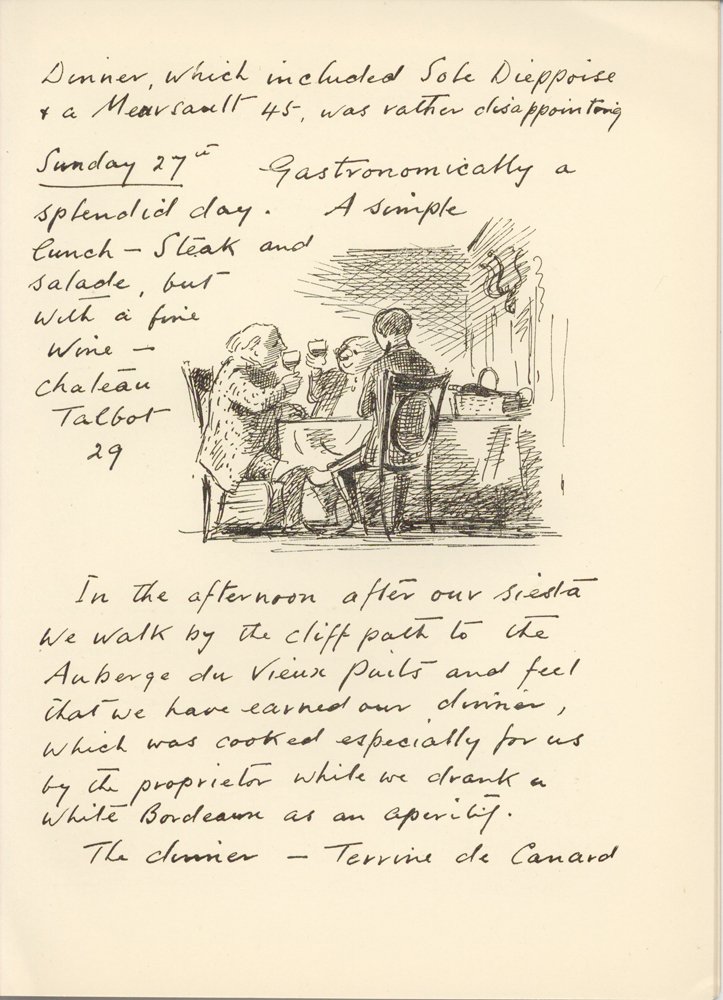 Dinner, which included Sole Dieppoise
& a Meursault 45, was rather disappointing
Sunday 27th Gastronomically a
splendid day. A simple
lunch – Steak and
salade, but
with a fine
wine –
Chateau
Talbot
29
In the afternoon after our siesta
we walk by the cliff path to the
Auberge du Vieux Puits and feel
that we have earned our dinner,
which was cooked especially for us
by the proprietor while we drank a
White Bordeaux as an aperitif.
The dinner – Terrine de Canard